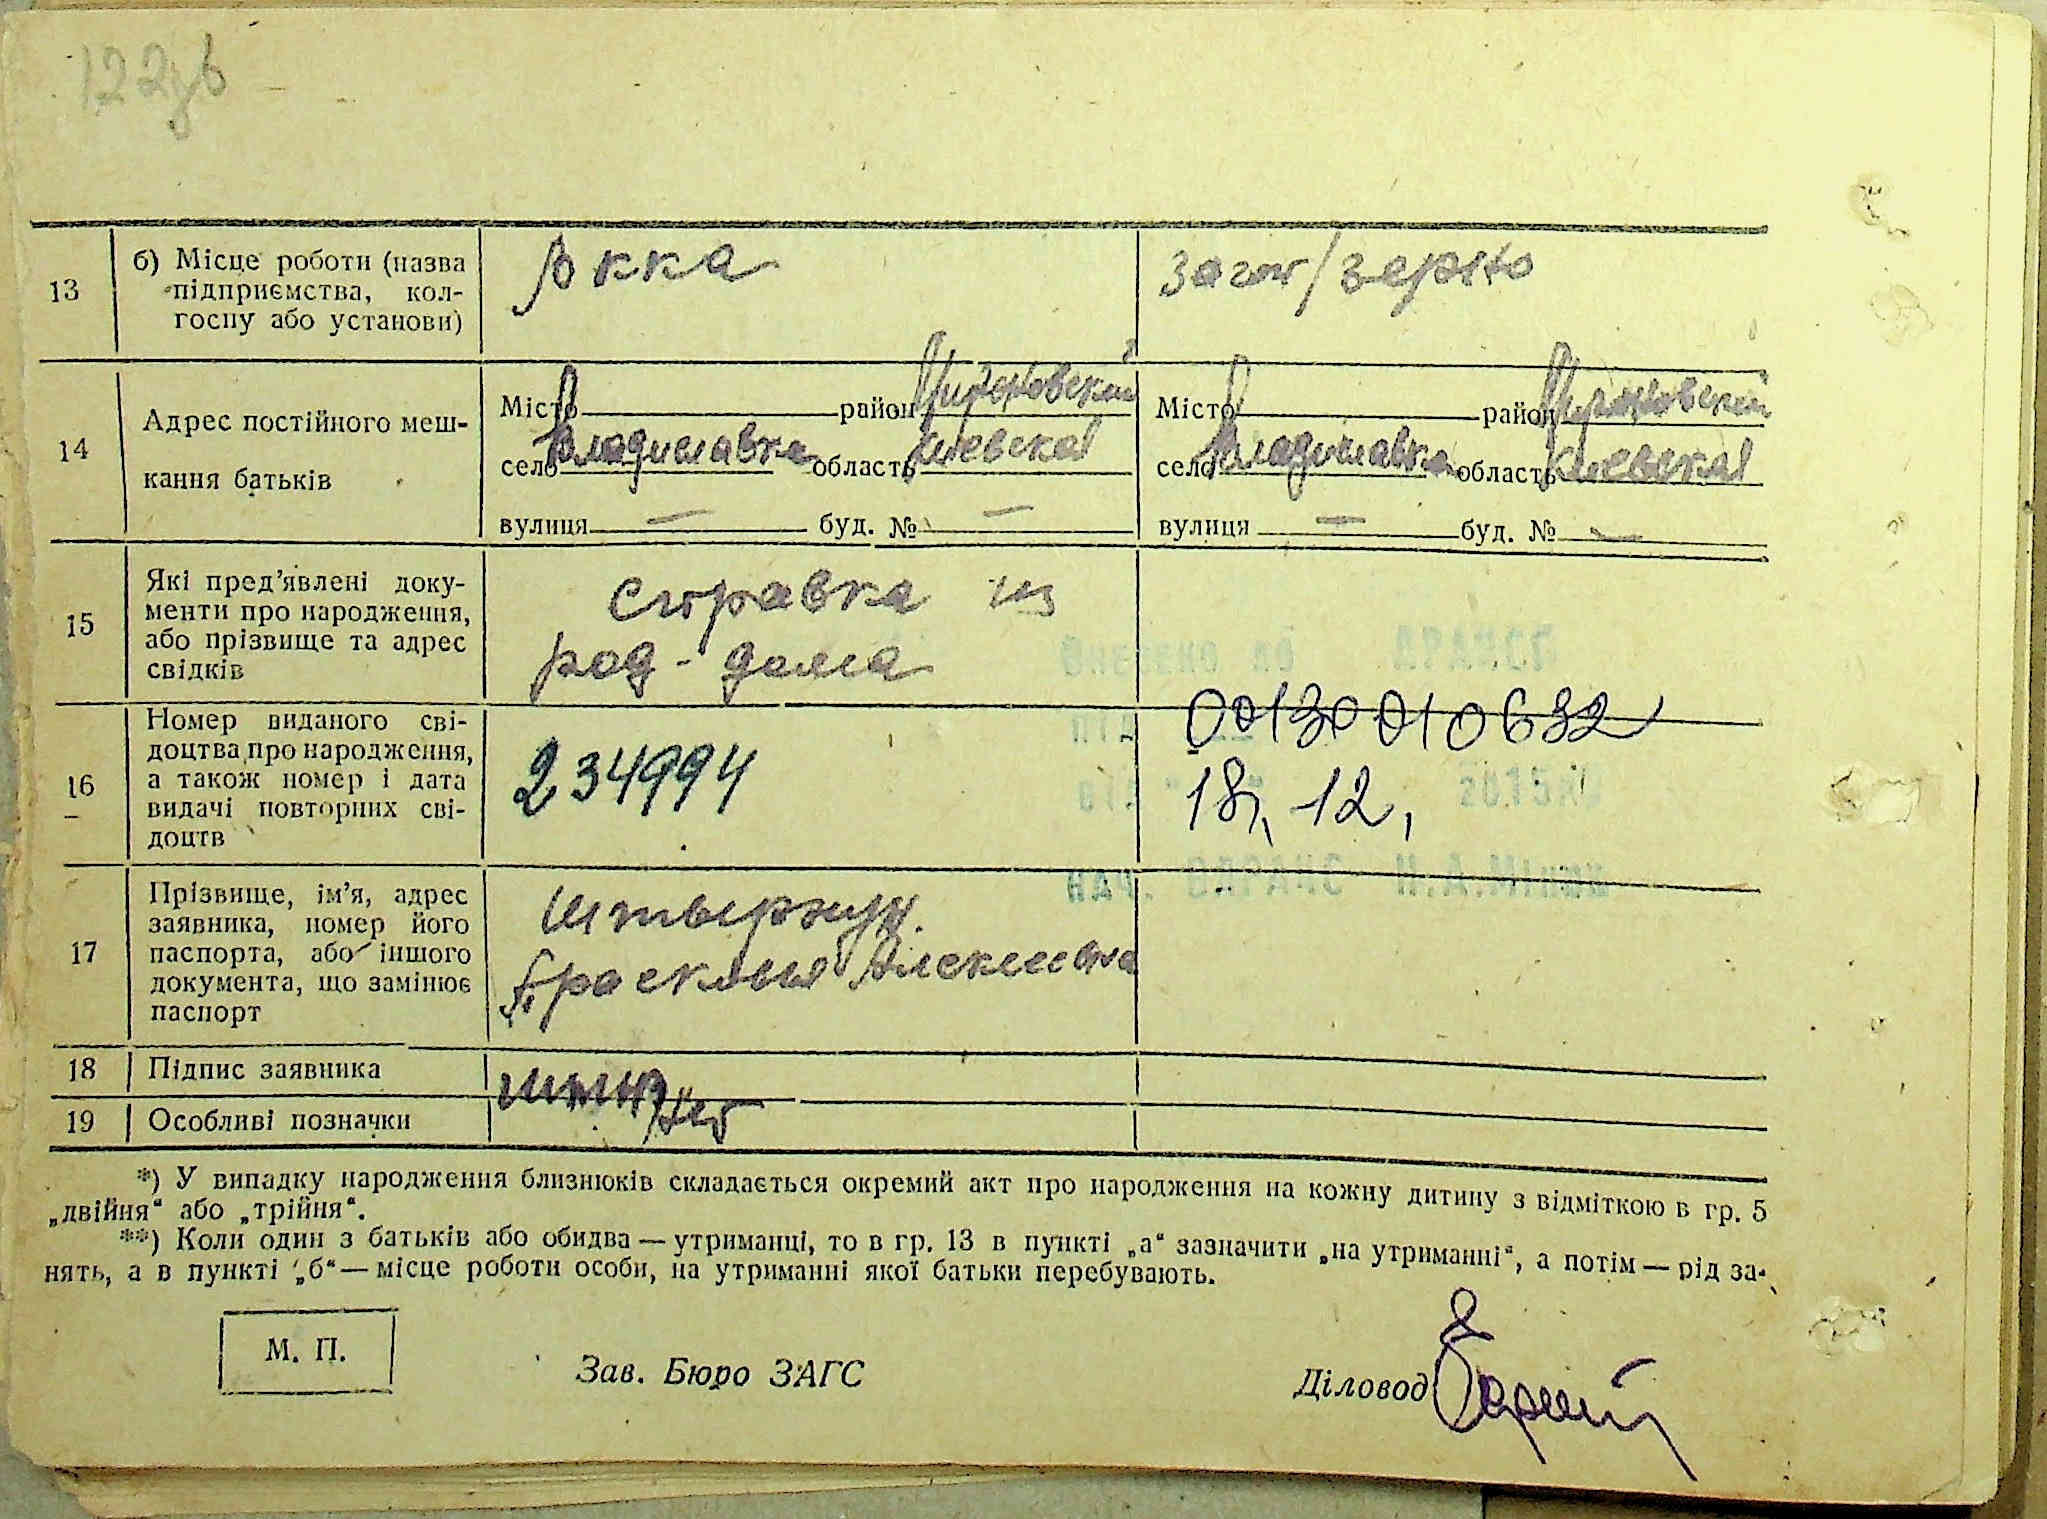 122зв
13
б) Місце роботи (назва
підприємства, кол-
госпу або установи)
Ркка
Загот/зерно
14
Адрес постійного меш-
кання батьків
Місто район Мироновский
село Владиславка область Киевская
вулиця — буд. № —
Місто район Мироновский
село Владиславка область Киевская
вулиця — буд. № —
15
Які пред’явлені доку-
менти про народження,
або прізвище та адрес
свідків
Справка из
род-дома
Внесено до ДРАЦСГ
16
Номер виданого сві-
доцтва про народження,
а також номер і дата
видачі повторних сві-
доцтв
234994
00130010632
18, 12,
2015
17
Прізвище, ім’я, адрес
заявника, номер його
паспорта, або іншого
документа, що замінює
паспорт
Прасковья Алексеевна
18
Підпис заявника
19
Особливі позначки
Нет
*) У випадку народження близнюків складається окремий акт про народження на кожну дитину з відміткою в гр. 5
„двійня“ або „трійня“.
**) Коли один з батьків або обидва — утриманці, то в гр. 13 в пункті „а“ зазначити „на утриманні“, а потім — рід за-
нять, а в пункті „б“ — місце роботи особи, на утриманні якої батьки перебувають.
М. П.
Зав. Бюро ЗАГС
Діловод